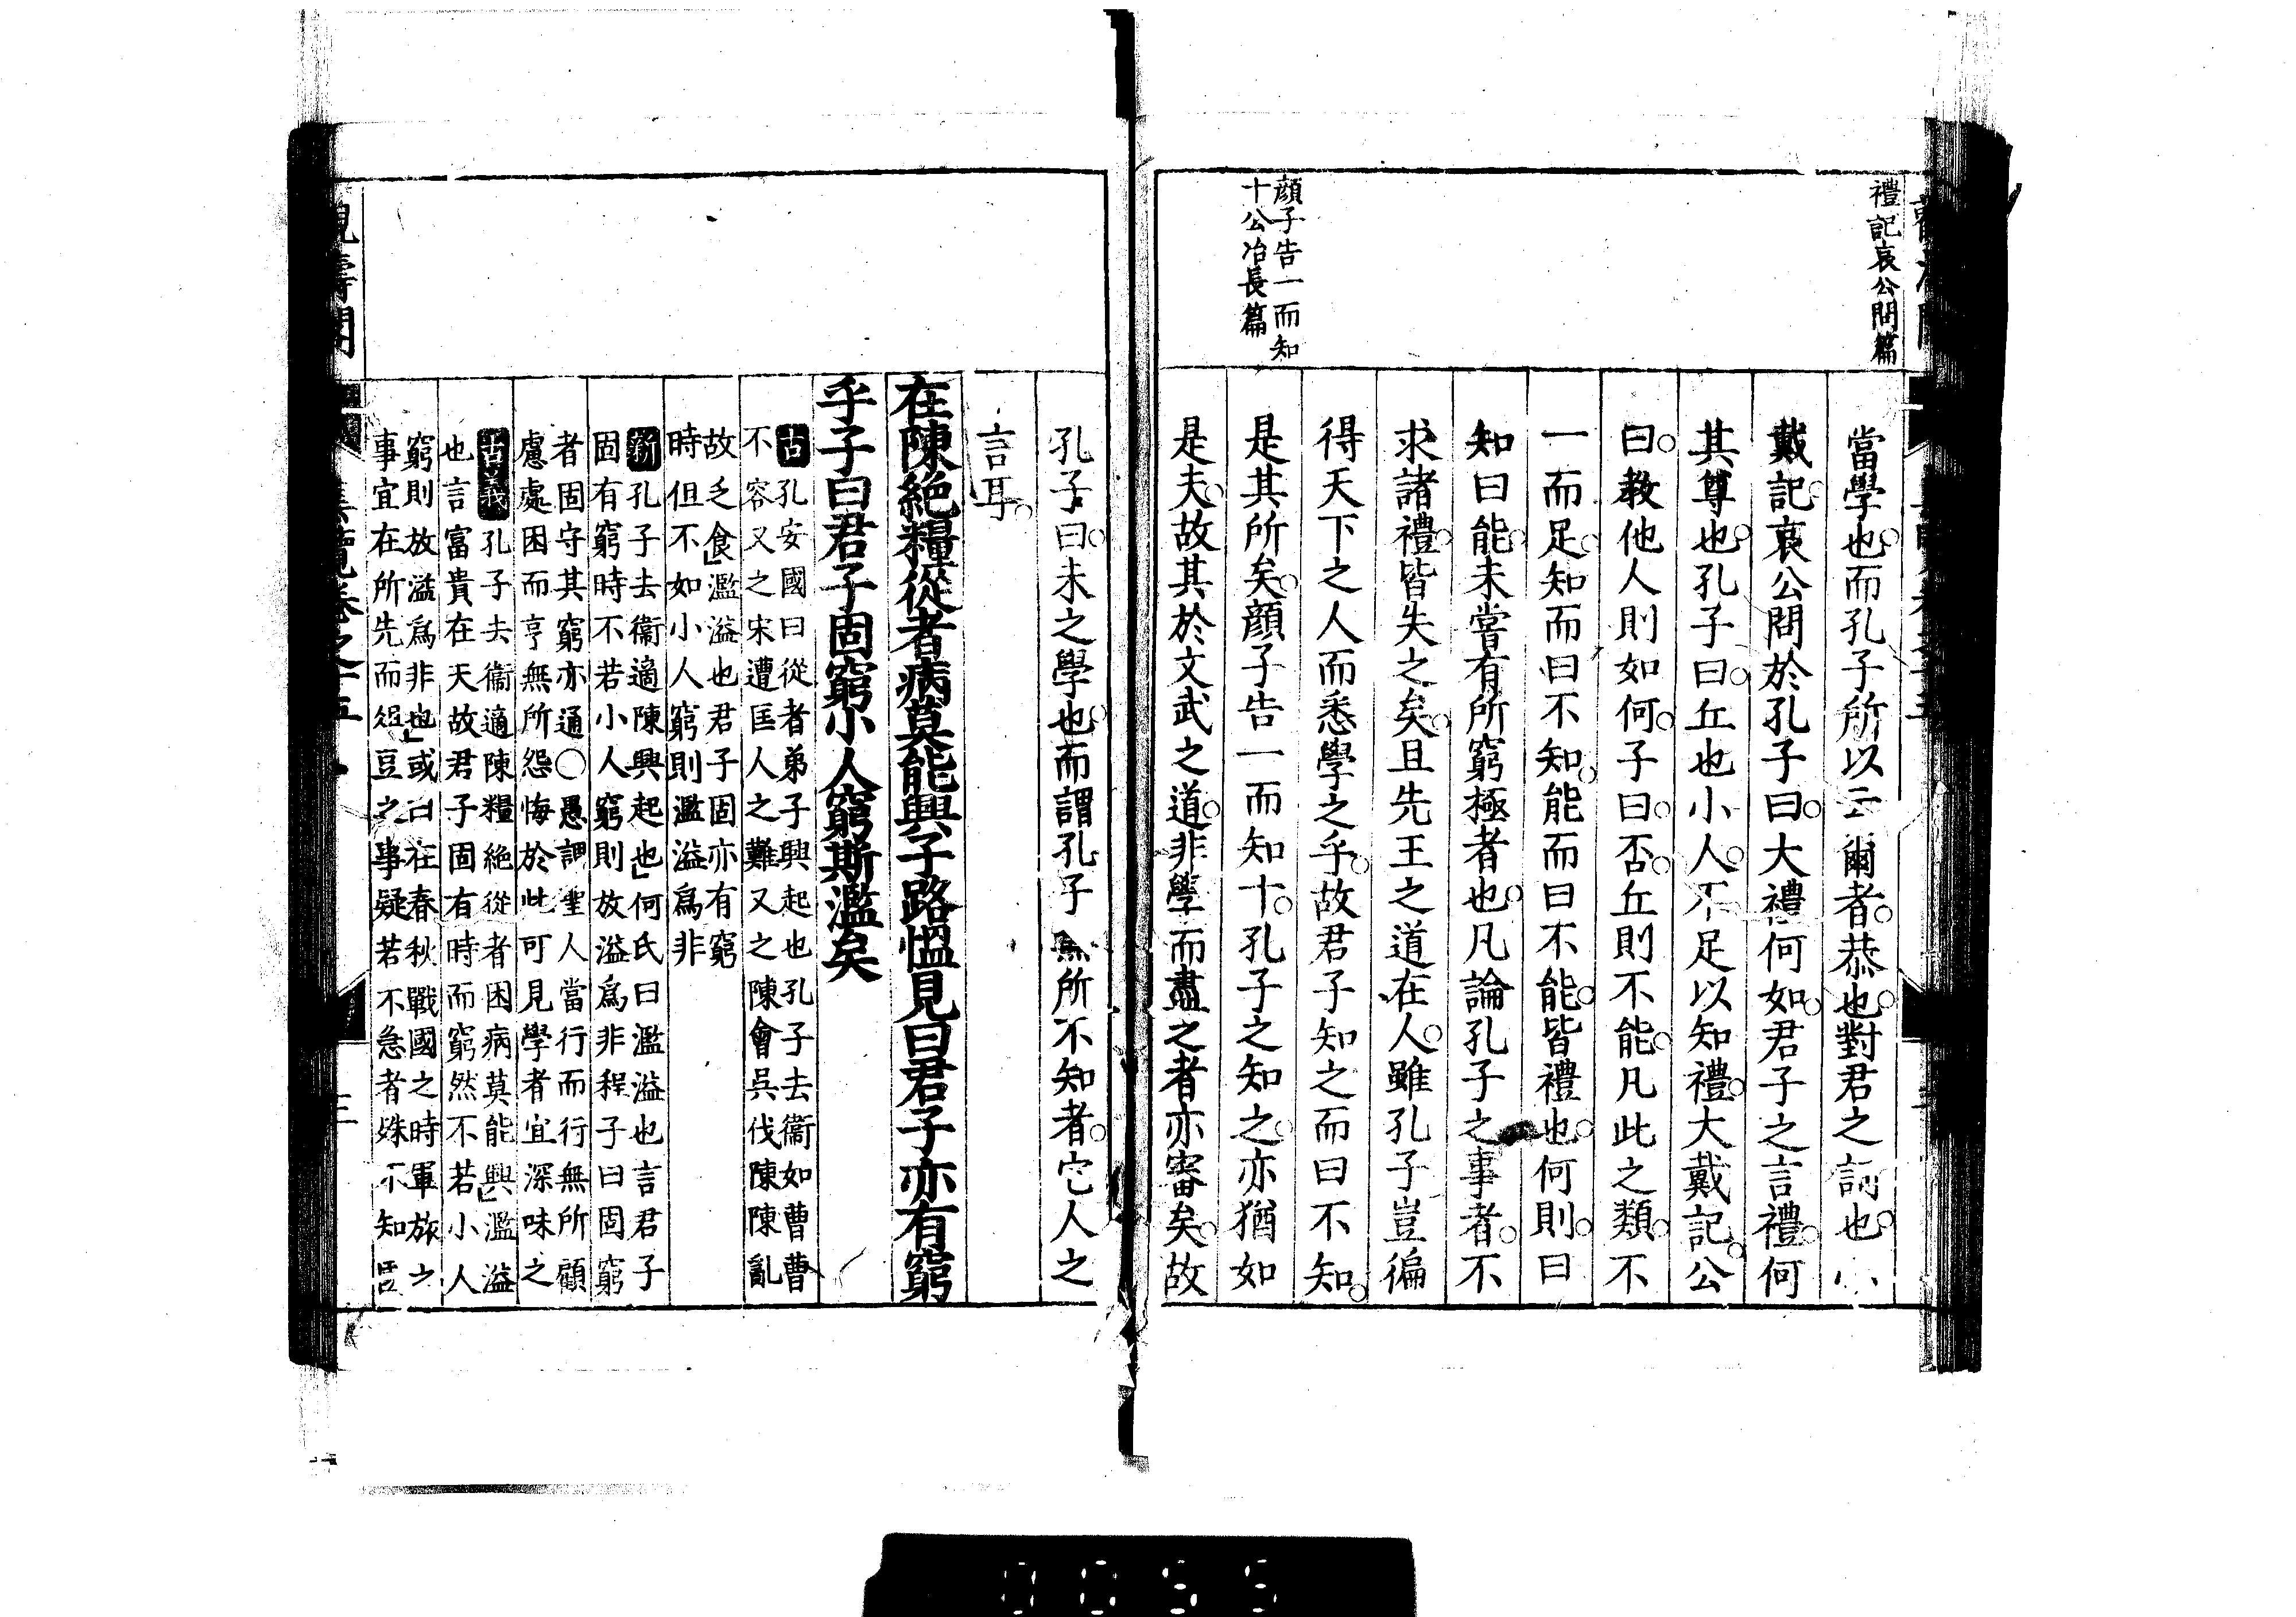 禮記哀公問篇
當學也而孔子所以云爾者恭也對君之詞也小
戴記哀公問於孔子曰大禮何如君子之言禮何
其尊也孔子曰丘也小人不足以知禮大戴記公
曰教他人則如何子曰否丘則不能凡此之類不
一而足知而曰不知能而曰不能皆禮也何則曰
知曰能未嘗有所窮極者也凡論孔子之事者不
求諸禮皆失之矣且先王之道在人雖孔子豈徧
得天下之人而悉學之乎故君子知之而曰不知
顔子告一而知
十公冶長篇
是其所矣顔子告一而知十孔子之知之亦猶如
是夫故其於文武之道非學而盡之者亦審矣故
孔子曰未之學也而謂孔子無所不知者它人之
言耳
在陳絕糧從者病莫能興子路慍見曰君子亦有窮
乎子曰君子固窮小人窮斯濫矣
古孔安國曰從者弟子興起也孔子去衞如曹曹
不容又之宋遭匡人之難又之陳會吳伐陳陳亂
故乏食濫溢也君子固亦有窮
時但不如小人窮則濫溢爲非
新孔子去衞適陳興起也何氏曰濫溢也言君子
固有窮時不若小人窮則放溢爲非程子曰固窮
者固守其窮亦通○愚謂聖人當行而行無所顧
慮處困而亨無所怨悔於此可見學者宜深味之
古義孔子去衞適陳糧絕從者困病莫能興濫溢
也言富貴在天故君子固有時而窮然不若小人
窮則放溢爲非也或曰在春秋戰國之時軍旅之
事宜在所先而俎豆之事疑若不急者殊不知
覽卷之十五
三
0055